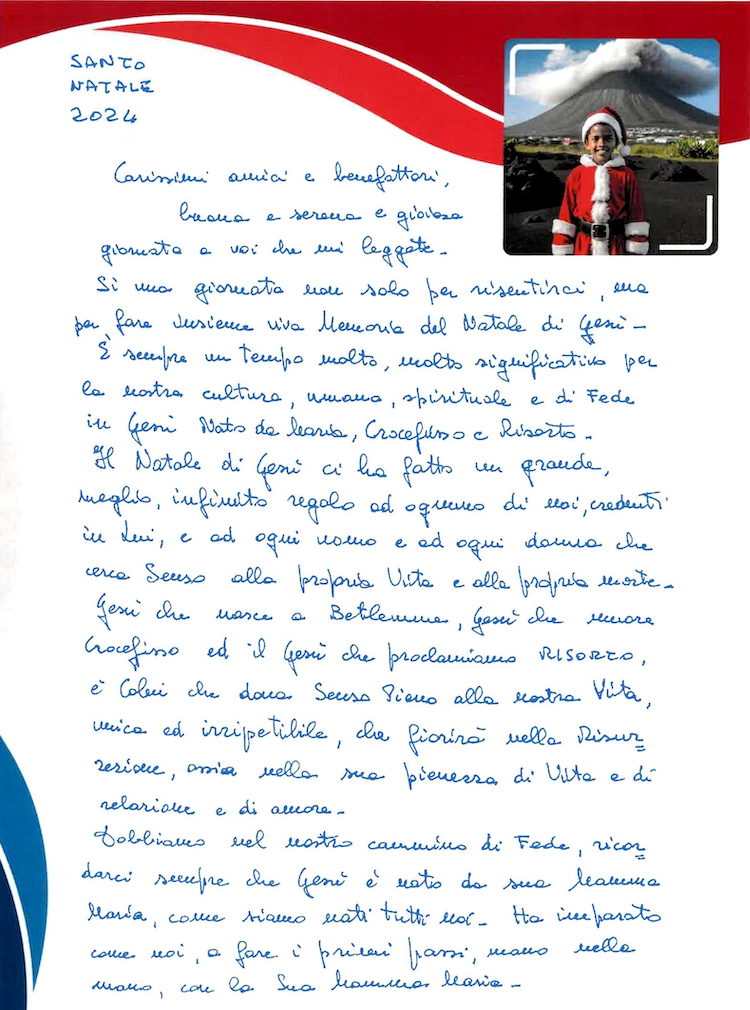 SANTO
NATALE
2024
Carissimi amici e benefattori,
buona e serena e gioiosa
giornata a voi che mi leggete.
Si una giornata non solo per risentirci, ma
per fare insieme viva Memoria del Natale di Gesù.
È sempre un tempo molto, molto significativo per
la nostra cultura, umana, spirituale e di Fede
in Gesù Nato da Maria, Crocefisso e Risorto.
Il Natale di Gesù ci ha fatto un grande,
meglio, infinito regalo ad ognuno di noi, credenti
in Lui, e ad ogni uomo e ad ogni donna che
cerca Senso alla propria Vita e alla propria morte.
Gesù che nasce a Betlemme, Gesù che muore
Crocefisso ed il Gesù che proclamiamo RISORTO,
è Colui che dona Senso Pieno alla nostra Vita,
unica ed irripetibile, che fiorirà nella Risur=
rezione, ossia nella sua pienezza di Vita e di
relazione e di amore.
Dobbiamo nel nostro cammino di Fede, ricor=
darci sempre che Gesù è nato da sua Mamma
Maria, come siamo nati tutti noi. Ha imparato
come noi, a fare i primi passi, mano nella
mano, con la Sua Mamma Maria.